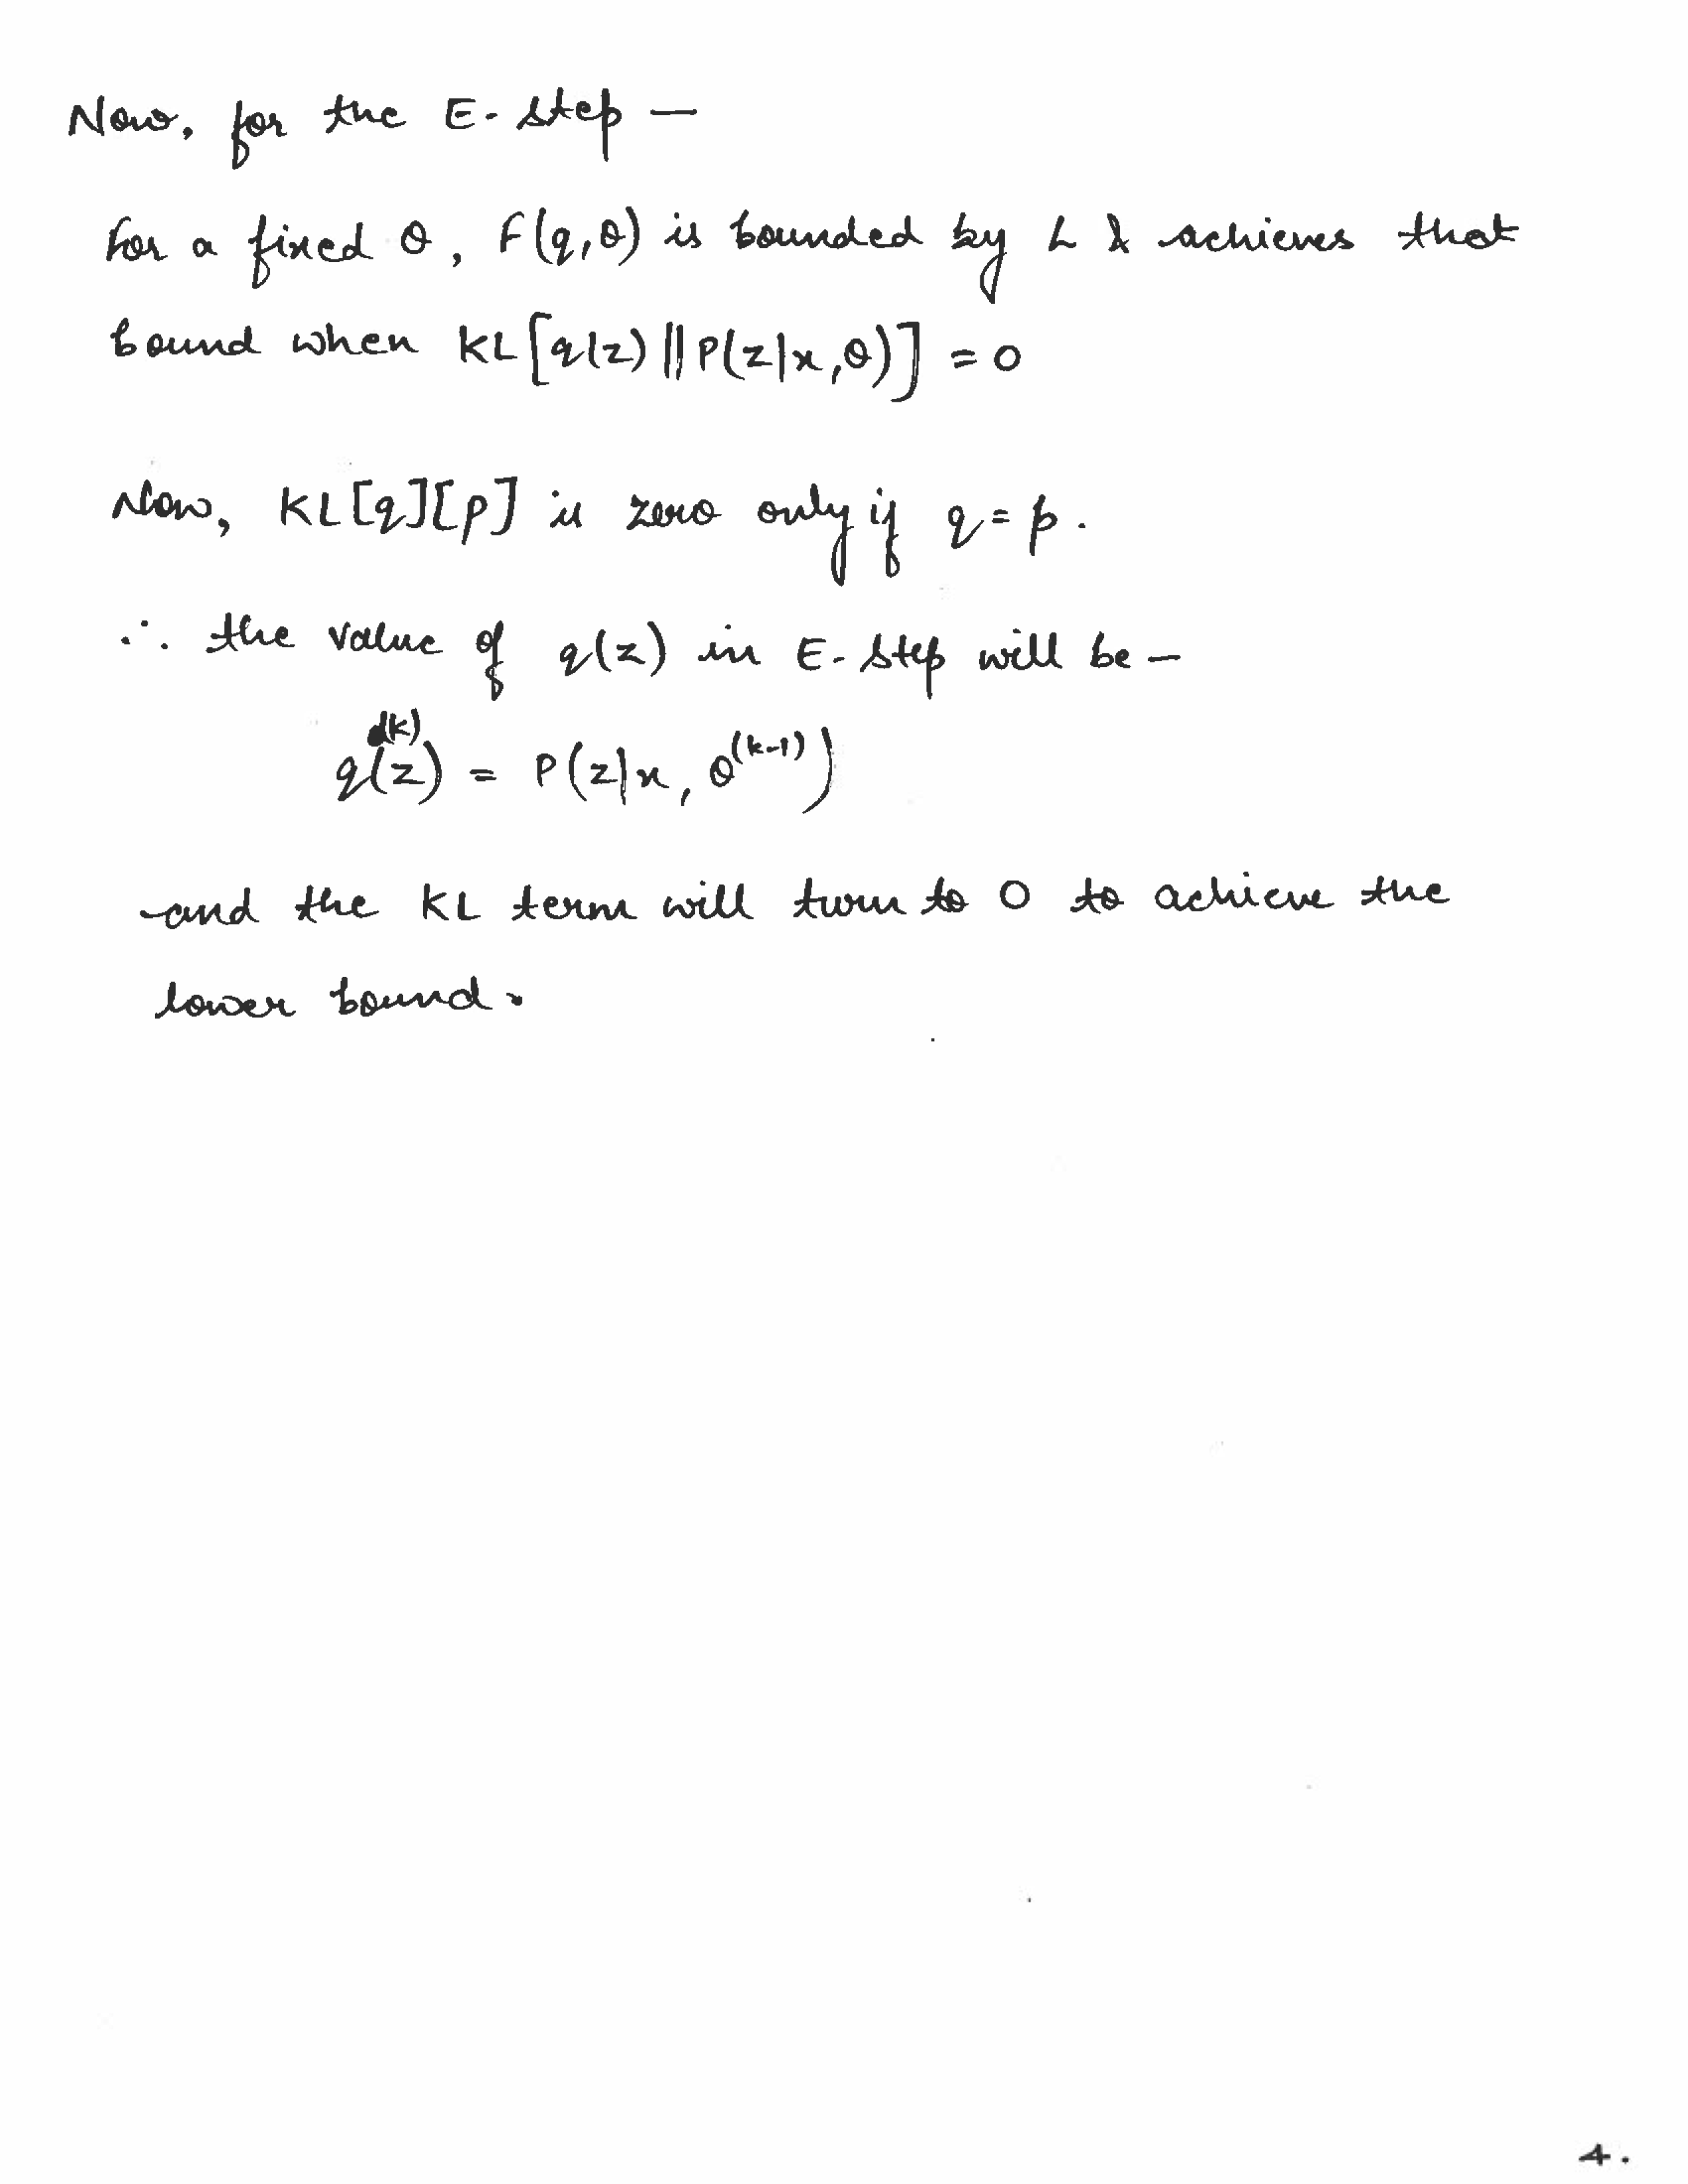 Now, for the E-step —
For a fixed θ, F(q,θ) is bounded by L & achieves that
bound when KL[q(z) || P(z|x,θ)] = 0
Now, KL[q][p] is zero only if q = p.
∴ the value of q(z) in E-step will be —
q^(k)(z) = P(z|x, θ^(k-1))
and the KL term will turn to 0 to achieve the
lower bound.
4.